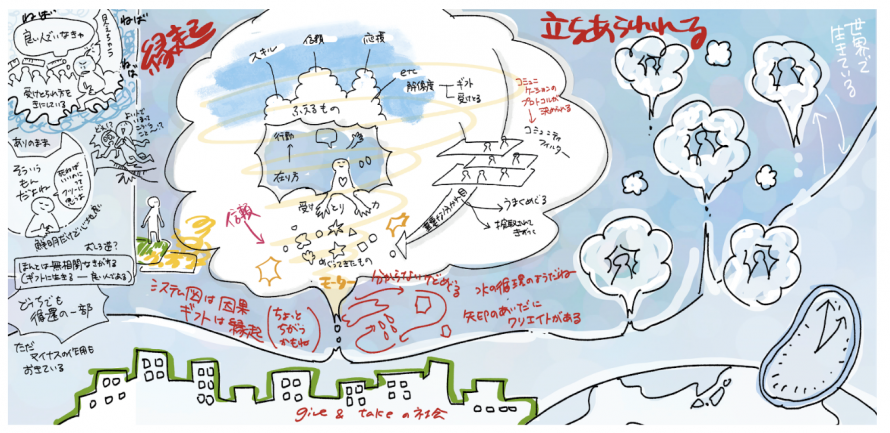 ねば
ねば
ねば
良い人でいなきゃ
受けとられ方を
きにしている
ありのまま
そういう
もん
だよね
むしろ逆?
ほんとは無相関なきがする
(ギフトに生きる ― 良い人である)
どっちでも
循環の一部
ただ
マイナスの作用も
おきている
縁起
スキル
信頼
応援
etc
解像度
ギフト
受けとる
ふえるもの
行動
在り方
受け とり 力
信頼
めぐってきたもの
モーター
コミュニ
ケーションの
プロトコルが
決められる
コミュニティ
フィルター
重要な分かれ目
うまくめぐる
搾取されて
きがつく
立ちあらわれる
世界で
生きている
システム図は因果
ギフトは縁起
ちょっと
ちがう
かもね
分からないけどめぐる
水の循環のようだねー
矢印のあいだに
クリエイトがある
give & take の社会